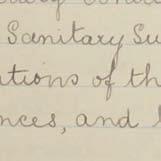 Sanitary Su
tions of th
nces, and